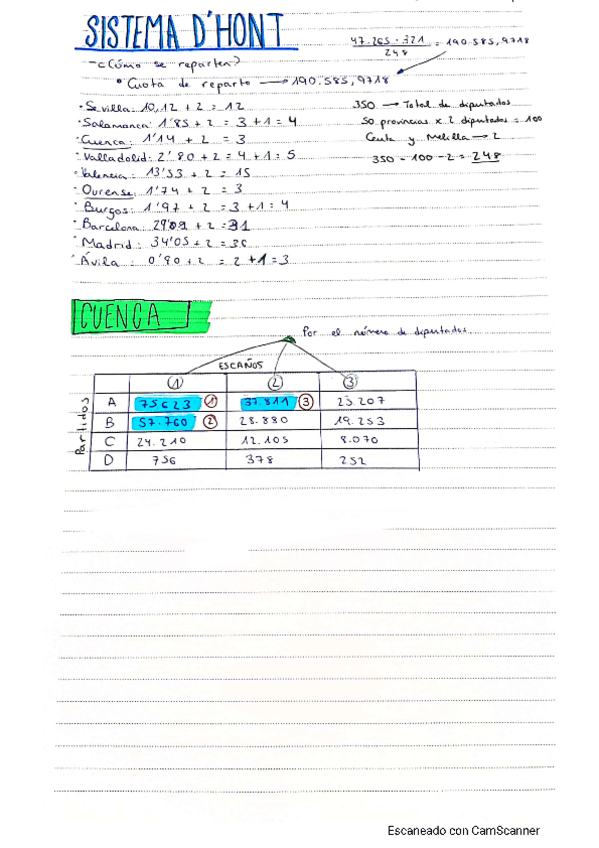 SISTEMA D'HONT
47.265.321 / 248 = 190.585,9718
-¿Cómo se reparten?
• Cuota de reparto → 190.585,9718
• Sevilla: 10,12 + 2 = 12
350 → Total de diputados
• Salamanca: 1'85 + 2 = 3 + 1 = 4
50 provincias x 2 diputados = 100
• Cuenca: 1'14 + 2 = 3
Ceuta y Melilla → 2
• Valladolid: 2'80 + 2 = 4 + 1 = 5
350 - 100 - 2 = 248
• Valencia: 13'53 + 2 = 15
• Ourense: 1'74 + 2 = 3
• Burgos: 1'97 + 2 = 3 + 1 = 4
• Barcelona: 29'09 + 2 = 31
• Madrid: 34'05 + 2 = 36
• Ávila: 0'80 + 2 = 2 + 1 = 3
CUENCA
Por el número de diputados
ESCAÑOS
1 2 3
Partidos
A 75623 1 37.811 3 25.207
B 57.760 2 28.880 19.253
C 24.210 12.105 8.070
D 756 378 252
Escaneado con CamScanner